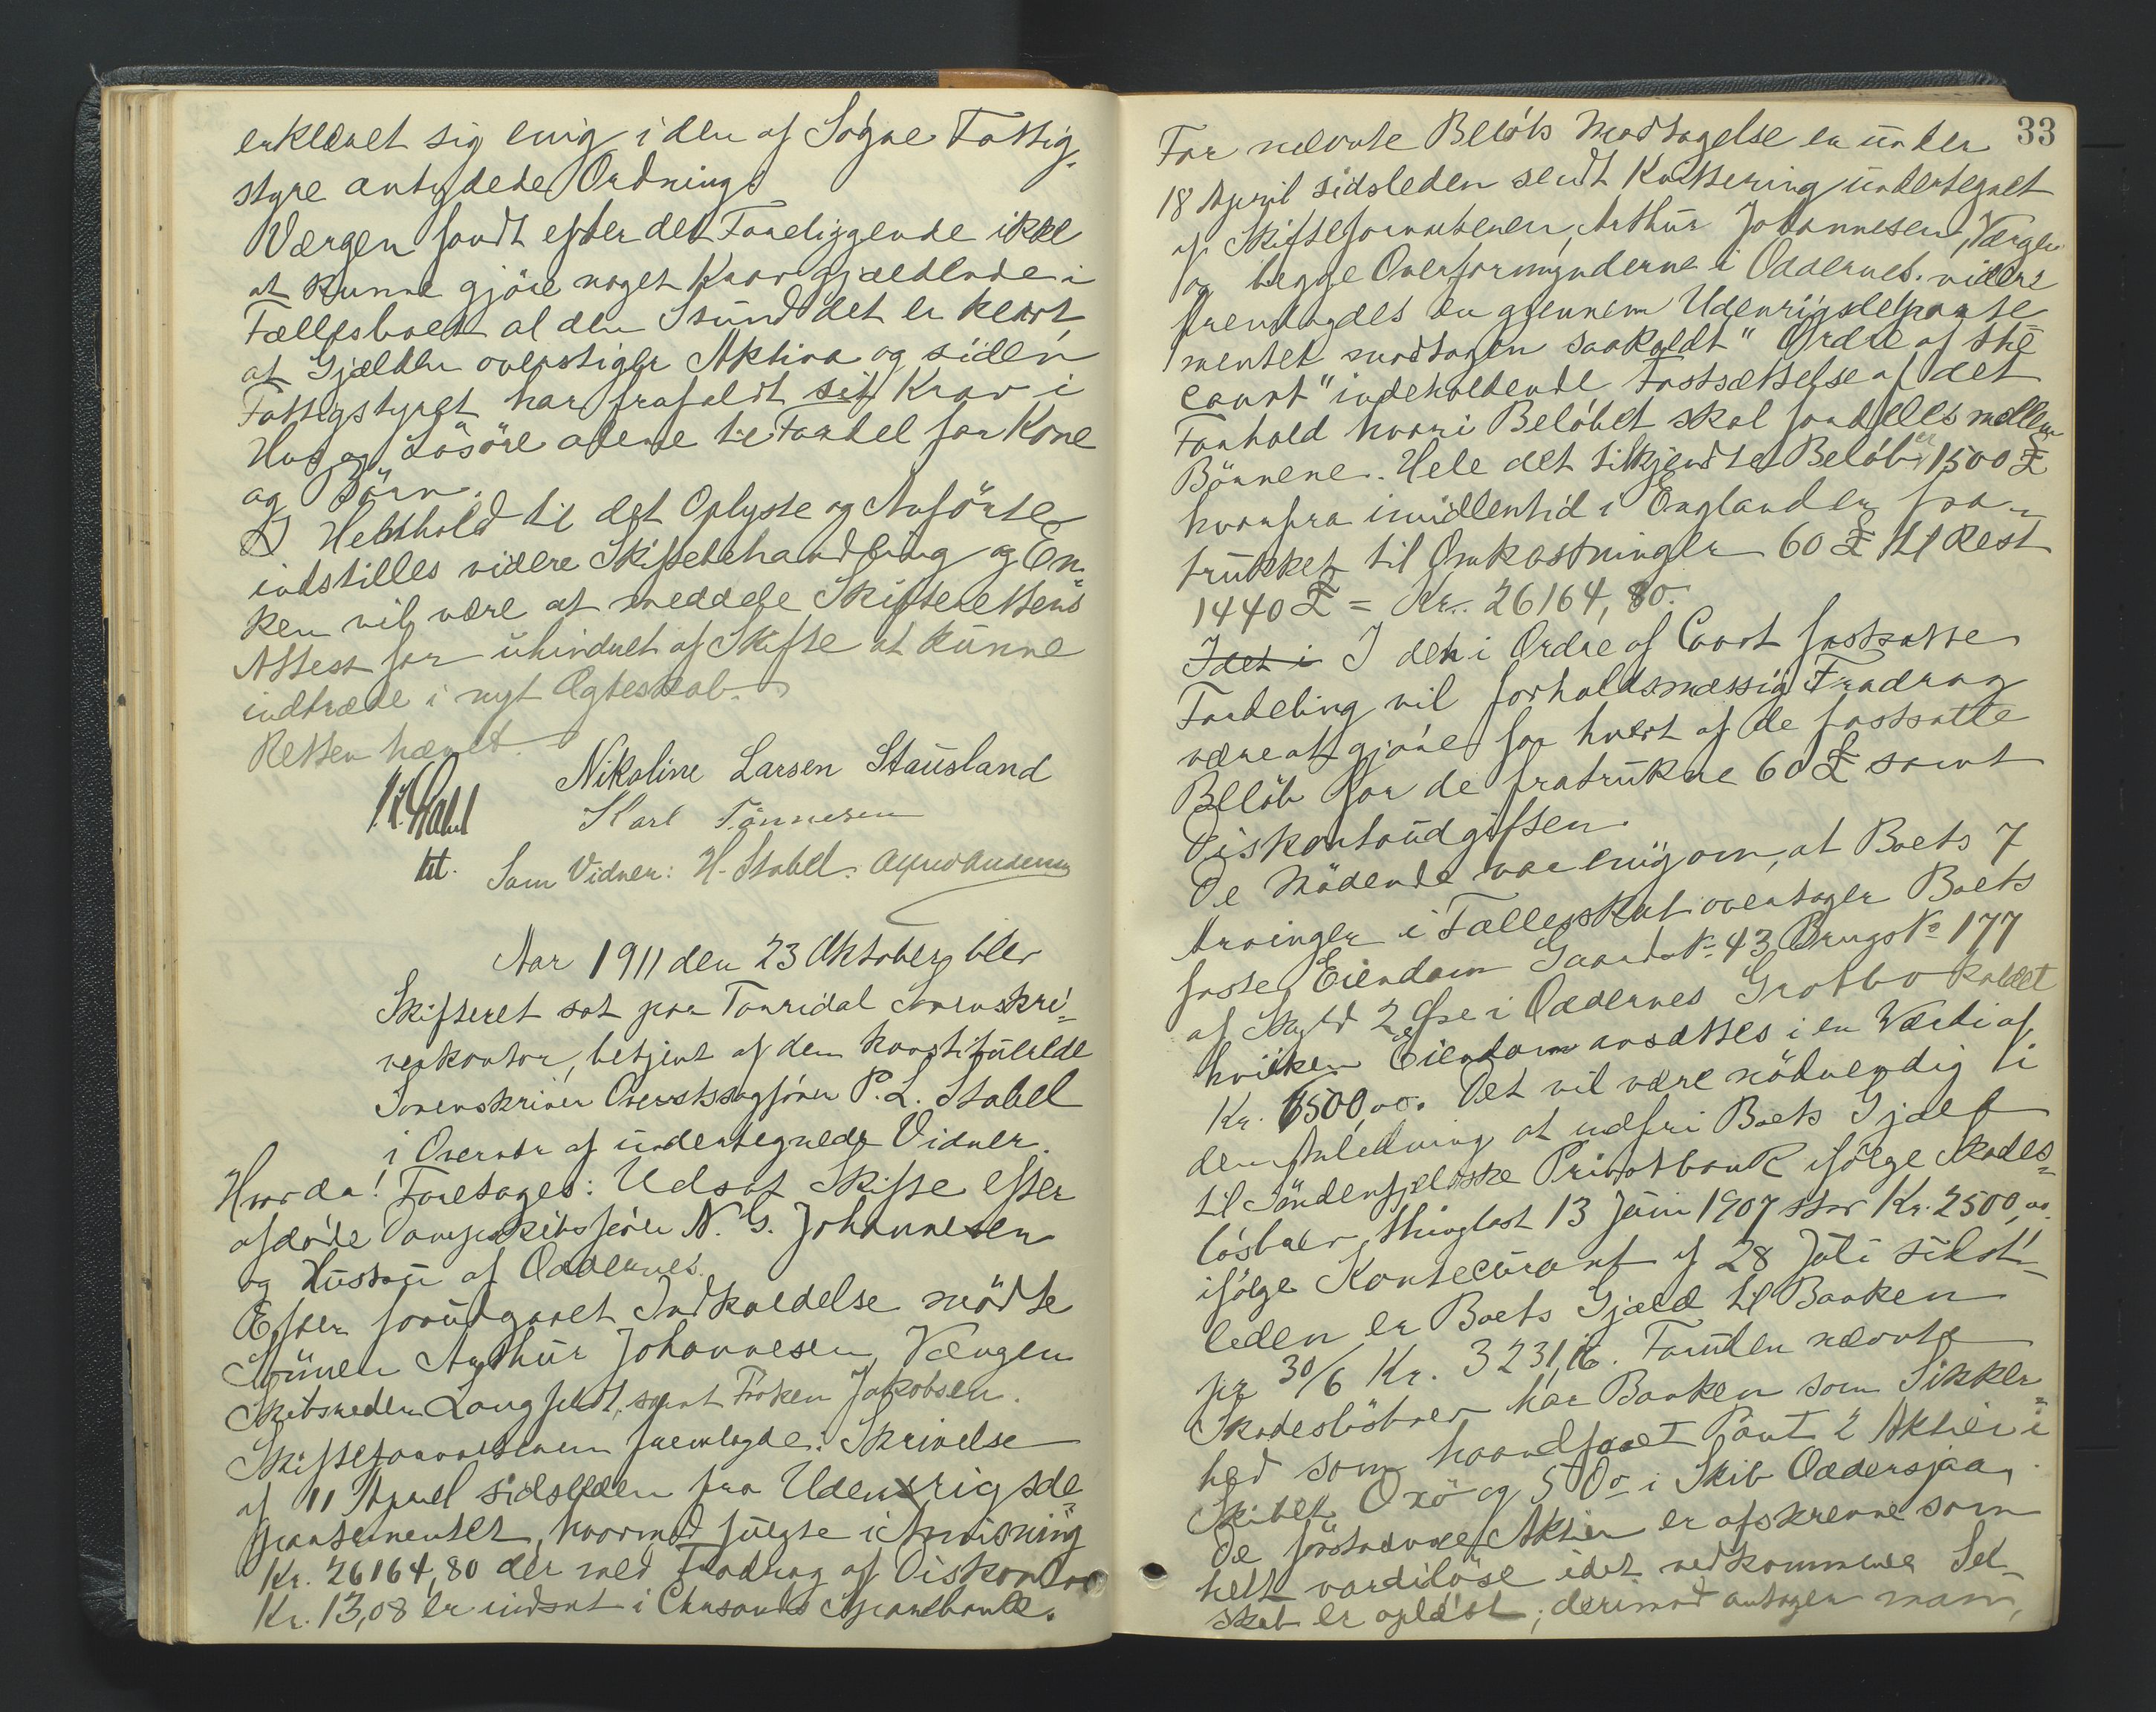 erklæret sig enig i den af Søgne Fattig-
styre antydede Ordning.
Værgen fandt efter det Foreliggende ikke
at kunne gjøre noget Krav gjældende i
Fællesboet al den Stund det er klart,
at Gjælden overstiger Aktiva og siden
Fattigstyret har frafaldt sit Krav i
Hus og Løsøre alene til Fordel for Kone
og Børn.
I Henhold til det Oplyste og Anførte
indstilles videre Skiftebehandling og En-
ken vil være at meddele Skifterettens
Attest for uhindret af Skifte at kunne
indtræde i nyt Ægteskab.
Retten hævet.
Nikoline Larsen Stausland
Karl Tönnesen
kst. Som Vidner: H. Stabel. Alfred Andersen
Aar 1911 den 23 Oktober blev
Skifteret sat paa Torridal Sorenskri-
verkontor, betjent af den konstituerede
Sorenskriver Overretssagfører P. L. Stabel
i Overvær af undertegnede Vidner.
Hvor da! Foretages: Udsat Skifte efter
afdøde Dampskibsfører N. G. Johannesen
og Hustru af Oddernes.
Efter forudgaaet Indkaldelse mødte
Sønnen Arthur Johannesen, Værgen
Skibsreder Langfeldt, samt Frøken Jakobsen.
Skifteforvalteren fremlagde: Skrivelse
af 11 April sidsleden fra Udenrigsde-
partementet, hvormed fulgte i Anvisning
Kr. 26164,80 der med Fradrag af Diskonto
Kr. 13,08 er indsat i Chrsands Sparebank.
33
For nævnte Beløbs Modtagelse er under
18 April sidsleden sendt Kvittering undertegnet
af Skifteforvalteren, Arthur Johannesen, Værgen
og begge Overformynderne i Oddernes. videre
fremlagdes en gjennem Udenrigsdeparte
mentet modtagen saakaldt "Ordre of the
Court" indeholdende Fastsættelse af det
Forhold hvori Beløbet skal fordeles mellem
Børnene. Hele det tilkjendte Beløb er 1500 £
hvorfra imidlertid i England er fra-
trukket til Omkostninger 60 £ til Rest
1440 £ = Kr. 26164,80.
Idet i I den i Ordre of Court fastsatte
Fordeling vil forholdsmæssig Fradrag
være at gjøre for hvert af de fastsatte
Beløb for de fratrukne 60 £ samt
Diskontoudgiften.
De Mødende var enig om, at Boets 7
Arvinger i Fællesskab overtager Boets
faste Eiendom Gaards No 43 Brugs No 177
af Skyld 2 Øre i Oddernes Grotbo kaldet
hvilken Eiendom ansættes i en Værdi af
Kr. 6500,00. Det vil være nødvendig i
den Anledning at udfri Boets Gjæld
til Søndenfjeldske Privatbank ifølge Skades-
løsbrev thinglæst 13 Juni 1907 stor Kr. 2500,00.
ifølge Kontocurant af 28 Juli sidst-
leden er Boets Gjæld til Banken
pr 30/6 Kr. 3231,16. Foruden nævnte
Skadesløsbrev har Banken som Sikker-
hed som haandfaaet Pant 2 Aktier i
Skibet Oxö og 5 Do i Skib Oddersjaa.
De førstnævnte Aktier er afskrevne som
helt værdiløse idet vedkommende Sel-
skab er opløst; derimod antager man,